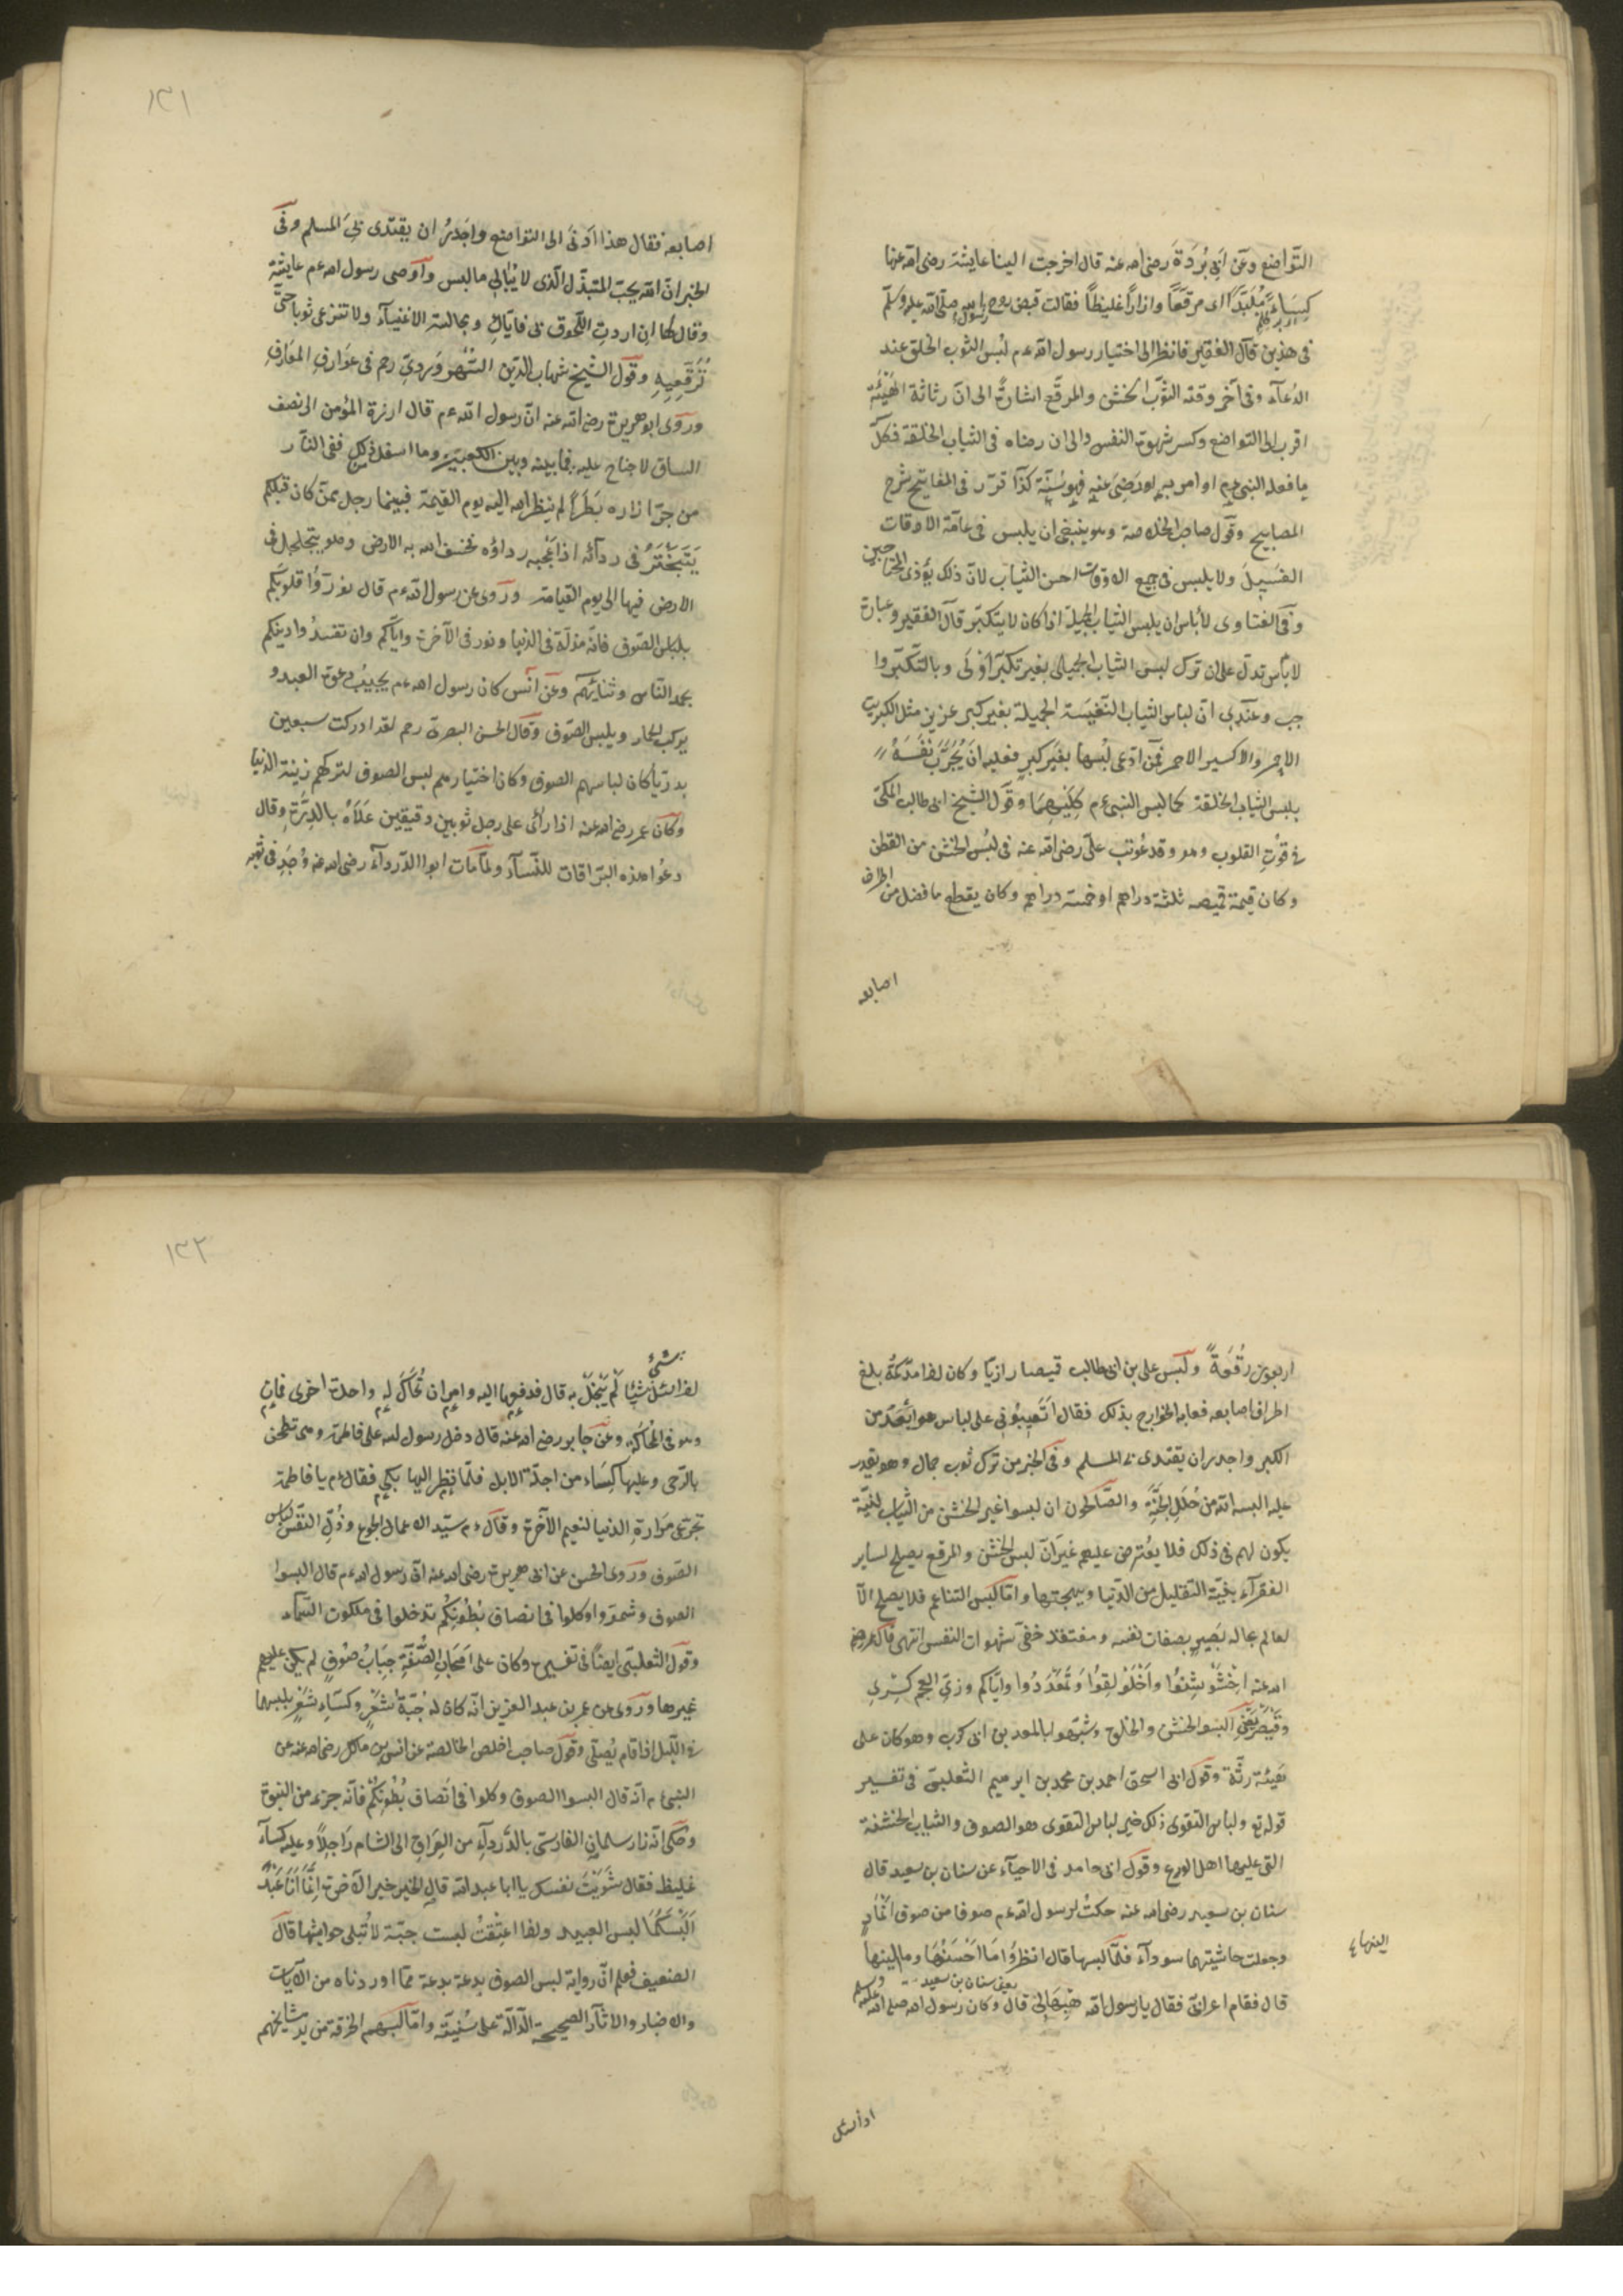 التواضع وعن ابى بُردَةَ رضى الله عنه قال اخرجت الينا عايشة رضى الله عنها
كِسَاءً مُلَبَّدًا اى مرقعًا وازارًا غليظًا فقالت قبض روح رسول الله صلى الله عليه وسلم
فى هذين قال الفقير فانظر الى اختيار رسول الله ءم لبس الثوب الخلق عند
الدعآء وفى آخر وقته الثوب الخشن والمرقع اشارةٌ الى ان رثاثة الهيئة
اقرب الى التواضع وكسر شهوة النفس والى ان رضاه فى الثياب الخلقة فكل
ما فعله النبى ءم او امر به او رَضِىَ عنه فهو سُنّة كذا قرر فى المفاتيح شرح
المصابيح وقول صاحب الخلاصة وهو ينبغى ان يلبس فى عامّة الاوقات
الغسيل ولا يلبس فى جميع الاوقات احسن الثياب لان ذلك يؤذى المحتاجين
وفى الفتاوى لا بأس ان يلبس الثياب الجميلة اذا كان لا يتكبّر قال الفقير وعبارة
لا بأس تدل على ان ترك لبس الثياب الجميل بغير تكبّر اَوْلَى وبالتكبّر وا
جب وعندى ان لباس الثياب النفيسة الجميلة بغير كبر عزيز مثل الكبريت
الاحمر والاكسير الاحمر فمن ادّعى لُبْسها بغير كبرٍ فعليه انْ يُجَرِّبَ نَفْسَهُ
بلبس الثياب الخلقة كما لبس النبى ءم كِلَيْهِمَا وقول الشيخ ابى طالب المكى
فى قوت القلوب وهو وقد عُوتب على رضى الله عنه فى لُبْس الخشن من القطن
وكان قيمة قميصه ثلثة دراهم او خمسة دراهم وكان يقطع ما فضل من اطراف
اصابعه
١٣١
اصابعه فقال هذا ادنى الى التواضع واجدرُ ان يقتدى بىَ المسلم وفى
الخبر ان الله يحب المتبذّل الذى لا يُبالى ما لبس واوصى رسول الله ءم عايشة
وقال لها ان اردتِ اللّحوق بى فايّاكِ ومجالسة الاغنيآء ولا تنزعى ثوبا حتى
تُرَقّعِيهِ وقول الشيخ شهاب الدين السُّهْروَرديّ رحم فى عَوارفِ المعَارفِ
وروى ابو هريرة رضى الله عنه ان رسول الله ءم قال ازرة المؤمن الى نصف
الساق لا جناح عليه فيما بينه وبين الكعبين وما اسفل ذلك ففى النار
من جرّ ازاره بَطَرًا لم ينظر الله اليه يوم القيمة فبينما رجل ممّن كان قبلكم
يَتَبَخْتَرُ فى ردآئه اذ اعْجبه رداؤه فخسف الله به الارض وهو يتجلجل فى
الارض فيها الى يوم القيامة وروى عن رسول الله ءم قال نوّروا قلوبكم
بلباس الصّوف فانه مذلّة فى الدنيا ونور فى الآخرة وايّاكم وان تفسدُوا دينكم
بحمد الناس وثنائهم وعن انس كان رسول الله ءم يجيبُ دعوة العبد و
يركب الحمار ويلبس الصّوف وقال الحسن البصرى رحم لقد ادركت سبعين
بدريّا كان لباسهم الصوف وكان اختيارهم لبس الصوف لتركهم زينة الدنيا
وكان عمر رضى الله عنه اذا رأى على رجل ثوبين دقيقين عَلَاهُ بالدِّرَّةِ وقال
دعُوا هذه البرّاقات للنسآء ولمّا مات ابوا الدّردآء رضى الله عنه وُجِدَ فى ثوبه
اربعون رُقْعَةً ولَبس على بن ابى طالب قميصا رازيّا وكان اذا مدّ كمّهُ بلغ
اطراف اصابعه فعابه الخوارج بذلك فقال اَتَعيبُونى على لباس هو ابْعَدُ من
الكبر واجدر ان يقتدى بى المسلم وفى الخبر من ترك ثوب جمال وهو يقدر
عليه البسه الله من حُلَلِ الجنّةِ والصّالحون ان لبسوا غير الخشن من الثياب لنيّة
يكون لهم فى ذلك فلا يعُترض عليهم غيرَ انّ لبس الخشن والمرقع يصلح لساير
الفقرآء بنيّة التقليل من الدّنيا وبهجتها وامّا لُبس الناعم فلا يصلح الّا
لعالم بحاله بَصيرٍ بصفات نفسه ومفتقد خفىّ شهوات النفس انتهى قال عمر رضى
الله عنه اِخْشَوْشِنُوا واخْلَوْلِقُوا وتمَعْدَدُوا وايّاكم وزىّ العجم كِسْرى
وقَيْصَر يعنى البسوا الخشن والخلق وتشبّهوا بالمعد بن ابى كرب وهو كان على
هَيئة رثّة وقول ابى اسحق احمد بن محمد بن ابرهيم الثعلبىّ فى تفسير
قوله تع ولباس التقوى ذلك خير لباس التقوى هو الصوف والثياب الخشنة
التى عليها اهل الورع وقول ابى حامد فى الاحيآء عن سنان بن سعيد قال
سنان بن سعيد رضى الله عنه حكتُ لرسول الله ءم صوفا من صوف انْمَارٍ
وجعلت حاشيتهما سودآء فلمّا لبسها قال انظرُوا مَا احْسَنُهَا وما الينها
يعنى سنان بن سعيد
قال فقام اعرابىّ فقال يا رسول الله هَبْهَا لى قال وكان رسول الله صلى الله عليه وسلم
الينها
اذا سئل
١٣٢
اذا سُئل شيئًا لم يَبْخَلْ به قال فدفعها اليه وامر ان تُحَاكَ له واحدة اخرى فمات
بشىء
وهو فى المحاكة وعَن جابر رضى الله عنه قال دخل رسول الله على فاطمة وهى تطحن
بالرّحى وعليها كِسَاء من اجلّة الابل فلمّا نظر اليها بكى فقال ءم يا فاطمة
تجرّعى مرَارةِ الدنيا لنعيم الآخرة وقال ءم سيّد الاعمال الجوع وذُلّ النفس لباس
الصّوف وروى الحسن عن ابى هريرة رضى الله عنه ان رسول الله ءم قال البسوا
الصوف وشمرّوا وكلوا فى انصاف بُطُونِكُم تدخلوا فى ملكوت السّماء
وقول الثعلبىّ ايضًا فى تفسيره وكان على اصَحابِ الصُّفّةِ جِبَابُ صُوفٍ لم يكن عليهم
غيرها وروى عن عمر بن عبد العزيز انّه كان له جُبّةُ شَعْرٍ وكسآءِ شَعْرٍ يلبسها
فى اللّيل اذا قام يُصلّى وقول صاحب اخلص الخالصة عن انس بن مالك رضى الله عنه عن
النبى ءم انه قال البسوا الصوف وكلوا فى اَنصَاف بُطُونِكُمْ فانه جزء من النبوة
وحكى انّه زار سلمان الفارسىّ بالدّردآءِ من العِراق الى الشام رَاجِلاً وعليه كسآءٌ
غليظ فقال شوّيْتَ نفسك يا ابا عبد الله قال الخير خير الآخرة انَّمَا اَنَا عَبْدٌ
اَلْبَسُ كَمَا لبس العبيد واذا اعْتِقْتُ لبست جبّة لا تُبلى حواشيها قال
الضعيف فعلم انّ رواية لبس الصوف بدعة بدعة ممّا اوردناه من الآيات
والاخبار والاثار الصحيحة الدّالة على سُنّيته وامّا لُبسهم الخرقة من يد مشايخهم